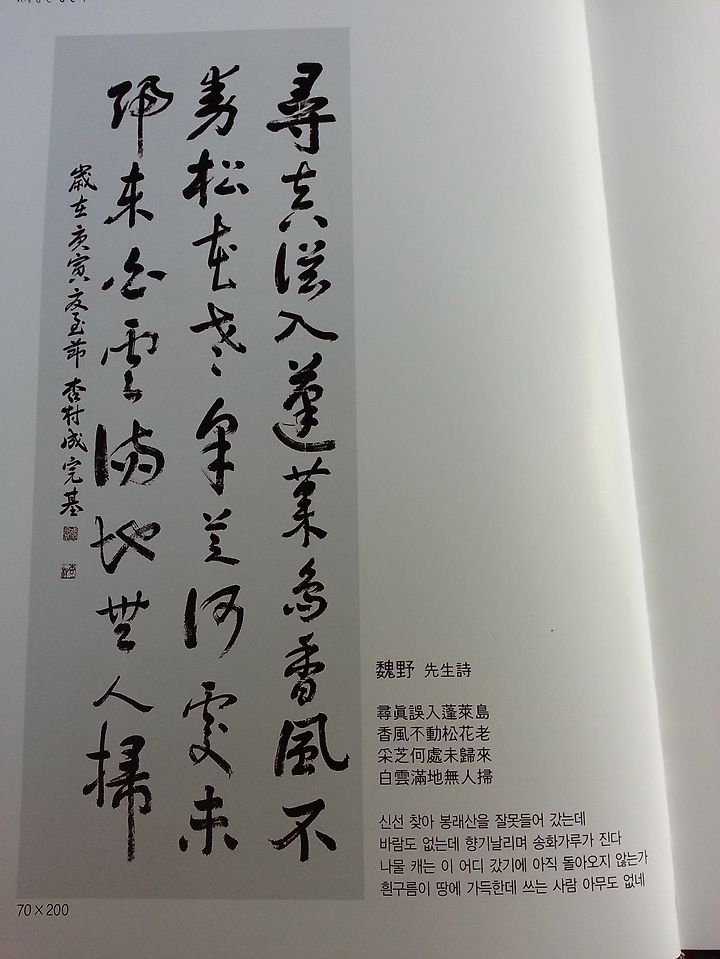 尋真誤入蓬萊島香風不
動松花老采芝何處未
歸來白雲滿地無人掃
歲在庚寅夏至節 杏村 成完基
魏野 先生詩
尋眞誤入蓬萊島
香風不動松花老
采芝何處未歸來
白雲滿地無人掃
신선 찾아 봉래산을 잘못들어 갔는데
바람도 없는데 향기날리며 송화가루가 진다
나물 캐는 이 어디 갔기에 아직 돌아오지 않는가
흰구름이 땅에 가득한데 쓰는 사람 아무도 없네
70×200